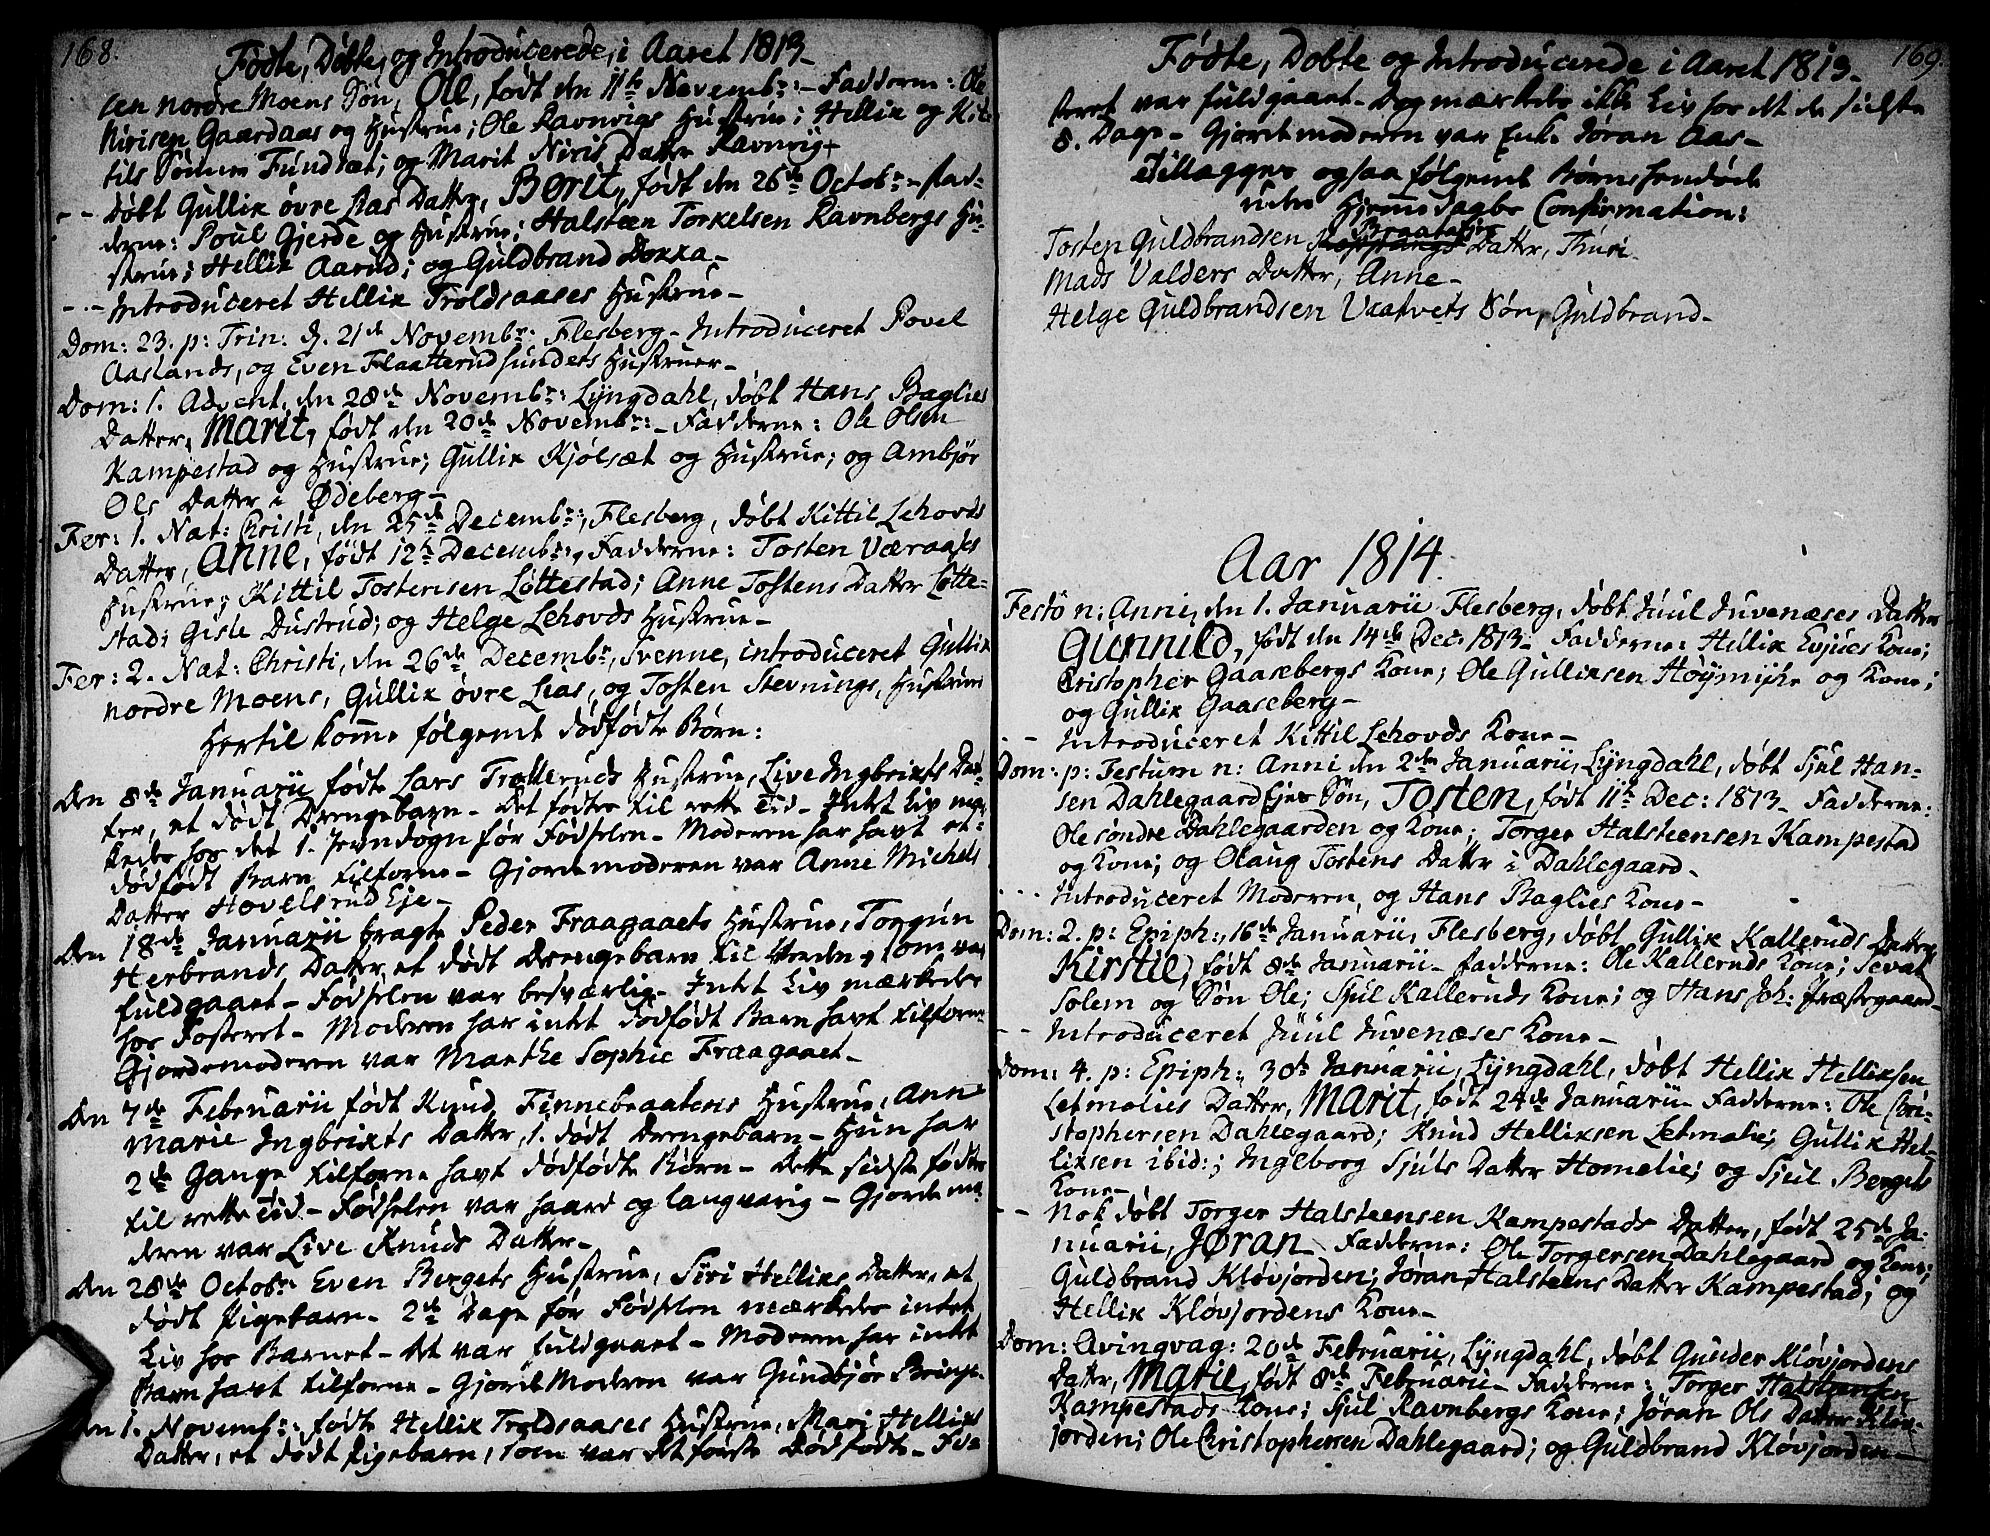 168.
Fødte, Døbte, og Introducerede, i Aaret 1813.
sen nordre Moens Søn, Ole, født den 11te Novembr: – Faddern: Ole
Nirisen Gaardaas og Hustrue; Ole Ravnvigs Hustrue; Hellik og Kit-
tils Sønner Fundsæt; og Marit Niris Datter Ravnvig.
– – Døbt Gullik øvre Lias Datter, Børit, født den 26de Octobr: – Fad-
derne: Poul Gjerde og Hustrue; Halsteen Torkelsen Ravnbergs Hu-
strue; Hellik Aarud; og Guldbrand Dokka –
– – Introduceret Hellik Troldsaases Hustrue –
Dom: 23. p: Trin: d. 21de Novembr: Flesberg – Introduceret Povel
Aaslands, og Even Flaatterudsundets Hustruer –
Dom: 1. Advent, den 28de Novembr: Lÿngdahl, døbt Hans Baglies
Datter, Marit, født den 20de Novembr: – Fadderne: Ole Olsen
Kampestad og Hustrue; Gullik Kjølsæt og Hustrue; og Ambjør
Ols Datter i Ødeberg –
Fer: 1. Nat: Christi, den 25de Decembr:, Flesberg, døbt Kittil Lehovds
Datter, Anne, født 12te Decembr:, Fadderne: Tosten Væraases
Hustrue; Kittil Tostensen Løttestad; Anne Tostens Datter Løtte-
stad; Gisle Dustrud; og Helge Lehovds Hustrue –
Fer: 2. Nat: Christi, den 26de Decembr:, Svenne, introduceret Gullik
nordre Moens, Gullik øvre Lias, og Tosten Stevnings, Hustruer
Hertil komme følgende dødfødte Børn:
Den 8de Januarii fødte Lars Trolleruds Hustrue, Live Ingbrikts Dat-
ter, et dødt Drengebarn – Det fødtes til rette Tid – Intet Liv mær-
kedes hos det 1. Jevndøgn før Fødselen – Moderen har havt et
dødfødt Barn tilforne – Gjordemoderen var Anne Michels
Datter Hovelsrud Eje –
Den 18de Januarii bragte Peder Fraagaaets Hustrue, Torgun
Herbrands Datter, et dødt Drengebarn til Verden, som var
fuldgaaet – Fødselen var besværlig – Intet Liv mærkedes
hos Fosteret – Moderen har intet dødfødt Barn havt tilforne
Gjordemoderen var Marthe Sophie Fraagaaet –
Den 7de Februarii født Knud Finnebraatens Hustrue, Anne
Marie Ingbrikts Datter, 1. dødt Drengebarn – Hun har
2de Gange tilforne havt dødfødte Børn – Dette sidste fødtes
til rette Tid – Fødselen var haard og langvarig – Gjordemo-
deren var Live Knuds Datter –
Den 28de Octobr: Even Bergets Hustrue, Siri Helliks Datter, et
dødt Pigebarn – 2de Dage før Fødselen mærkedes intet
Liv hos Barnet – Det var fuldgaaet – Moderen har intet
Barn havt tilforne – Gjordemoderen var Gundbjør
Den 1. Novembr: fødte Hellik Troldsaases Hustrue, Mari Helliks
Datter, et dødt Pigebarn, som var det første Dødfødte – Fo-
169.
Fødte, Døbte og Introducerede i Aaret 1813.
steret var fuldgaaet – Dog mærkedes ikke Liv hos det de sidste
8. Dage – Gjordemoderen var Enke Jøran Aas –
Tillægges ogsaa følgende Børn hendøde
uden Hjemmedaabs Confirmation:
Braatalien
Tosten Guldbrandsen Datter, Thuri –
Mads Valders Datter, Anne –
Helge Guldbrandsen Vaatvets Søn, Guldbrand –
Aar 1814.
Festo n: Anni, den 1. Januarii Flesberg, døbt Juul Juvenæses Datter
Gunnild, født den 14de Dec: 1813 – Fadderne: Hellik Evjues Kone;
Cristopher Gaasebergs Kone; Ole Gulliksen Høÿmÿhr og Kone;
og Gullik Gaaseberg –
– – Introduceret Kittil Lehovds Kone –
Dom: p: Festum n: Anni den 2den Januarii, Lÿngdahl, døbt Sjul Han-
sen Dahlegaard Ejes Søn, Tosten, født 11te Dec: 1813 – Fadderne:
Ole søndre Dahlegaarden og Kone; Torger Halsteensen Kampestad
og Kone; og Olaug Tostens Datter i Dahlegaard –
– – Introduceret Moderen, og Hans Baglies Kone –
Dom: 2. p: Epiph:, 16de Januarii, Flesberg, døbt Gullik Kalleruds Datter
Kirstie, født 8de Januarii – Fadderne: Ole Kalleruds Kone; Sevat
Solem og Søn Ole; Sjul Kalleruds Kone; og Hans Joh: Præstegaard –
– – Introduceret Juul Juvenæses Kone –
Dom: 4. p: Epiph:, 30te Januarii, Lÿngdahl, døbt Hellik Helliksen
Letmolies Datter, Marit, født 24de Januarii – Fadderne: Ole Cri-
stophersen Dahlegaard; Knud Helliksen Letmolie; Gullik Hel-
liksen ibid:; Ingeborg Sjuls Datter Homelie; og Sjul Bergets
Kone –
– – Nok døbt Torger Halsteensen Kampestads Datter, født 25de Ja-
nuarii, Jøran – Fadderne: Ole Torgersen Dahlegaard og Kone;
Guldbrand Kløvjorden; Jøran Halsteens Datter Kampestad; og
Hellik Kløvjordens Kone –
Dom: Qvinqvag: 20de Februarii, Lÿngdahl, døbt Gunder Kløvjordens
Datter, Marie, født 8de Februarii – Fadderne: Torger Halsteensen
Kampestads Kone; Sjul Ravnbergs Kone; Jøran Ols Datter Kløv-
jorden; Ole Christophersen Dahlegaard; og Guldbrand Kløvjorden –